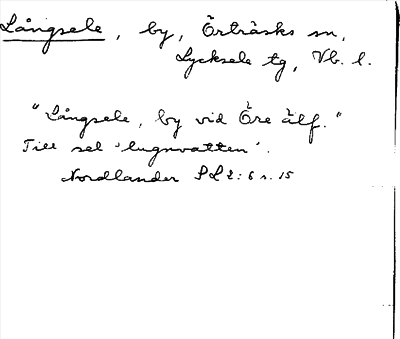 Långsele, by, Örträsks sn,
Lycksele tg, Vb. l.
"Långsele, by vid Öre älf."
Till sel 'lugnvatten'.
Nordlander SL 2:6 s. 15